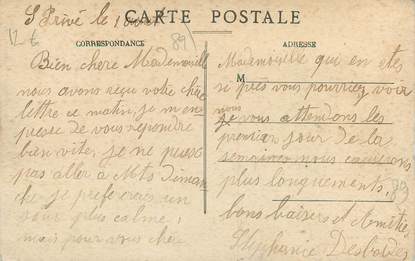 S Privé le 1 août
CARTE POSTALE
12 €
89
CORRESPONDANCE
Bien chere Mademoiselle
nous avons reçu votre chère
lettre ce matin, je m'em
presse de vous repondre
bien vite, je ne puess
pas aller à Mts diman
che je prefe
jour plus calme,
mais pour vous chère
ADRESSE
M
Mademoiselle qui en etes
si près vous pourriez voir
nous
je vous attendons les
premier jour de la
semaine nous causerons
plus longuements,
89
bons baisers et Amitié
Stephanie Desbordes